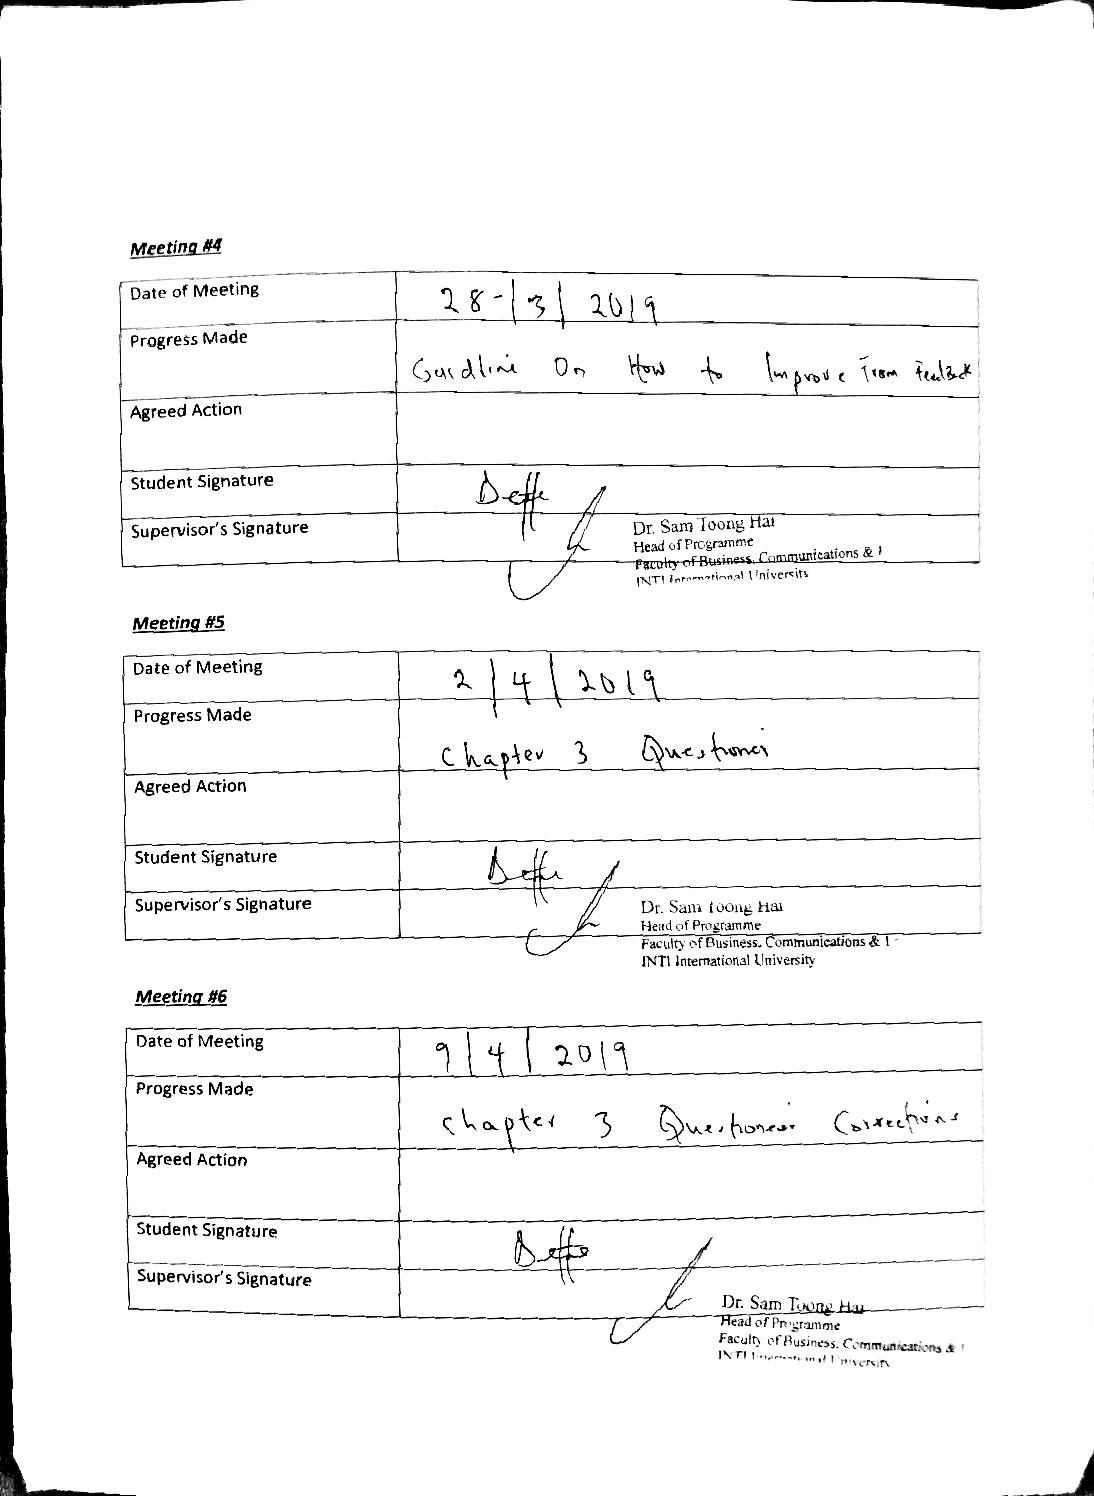 Meeting #4
Date of Meeting 28-/3/ 2019
Progress Made
Guidline On How to Improve From Feedback
Agreed Action
Student Signature
Supervisor's Signature
Dr. Sam Toong Hai
Head of Programme
Faculty of Business, Communications & l
INTI International University
Meeting #5
Date of Meeting 2/4/2019
Progress Made
Chapter 3
Agreed Action
Student Signature
Supervisor's Signature
Dr. Sam Toong Hai
Head of Programme
Faculty of Business, Communications & l
INTI International University
Meeting #6
Date of Meeting 9/4/2019
Progress Made
Chapter 3 Corrections
Agreed Action
Student Signature
Supervisor's Signature
Dr. Sam Toong Hai
Head of Programme
Faculty of Business, Communications &
INTI International University